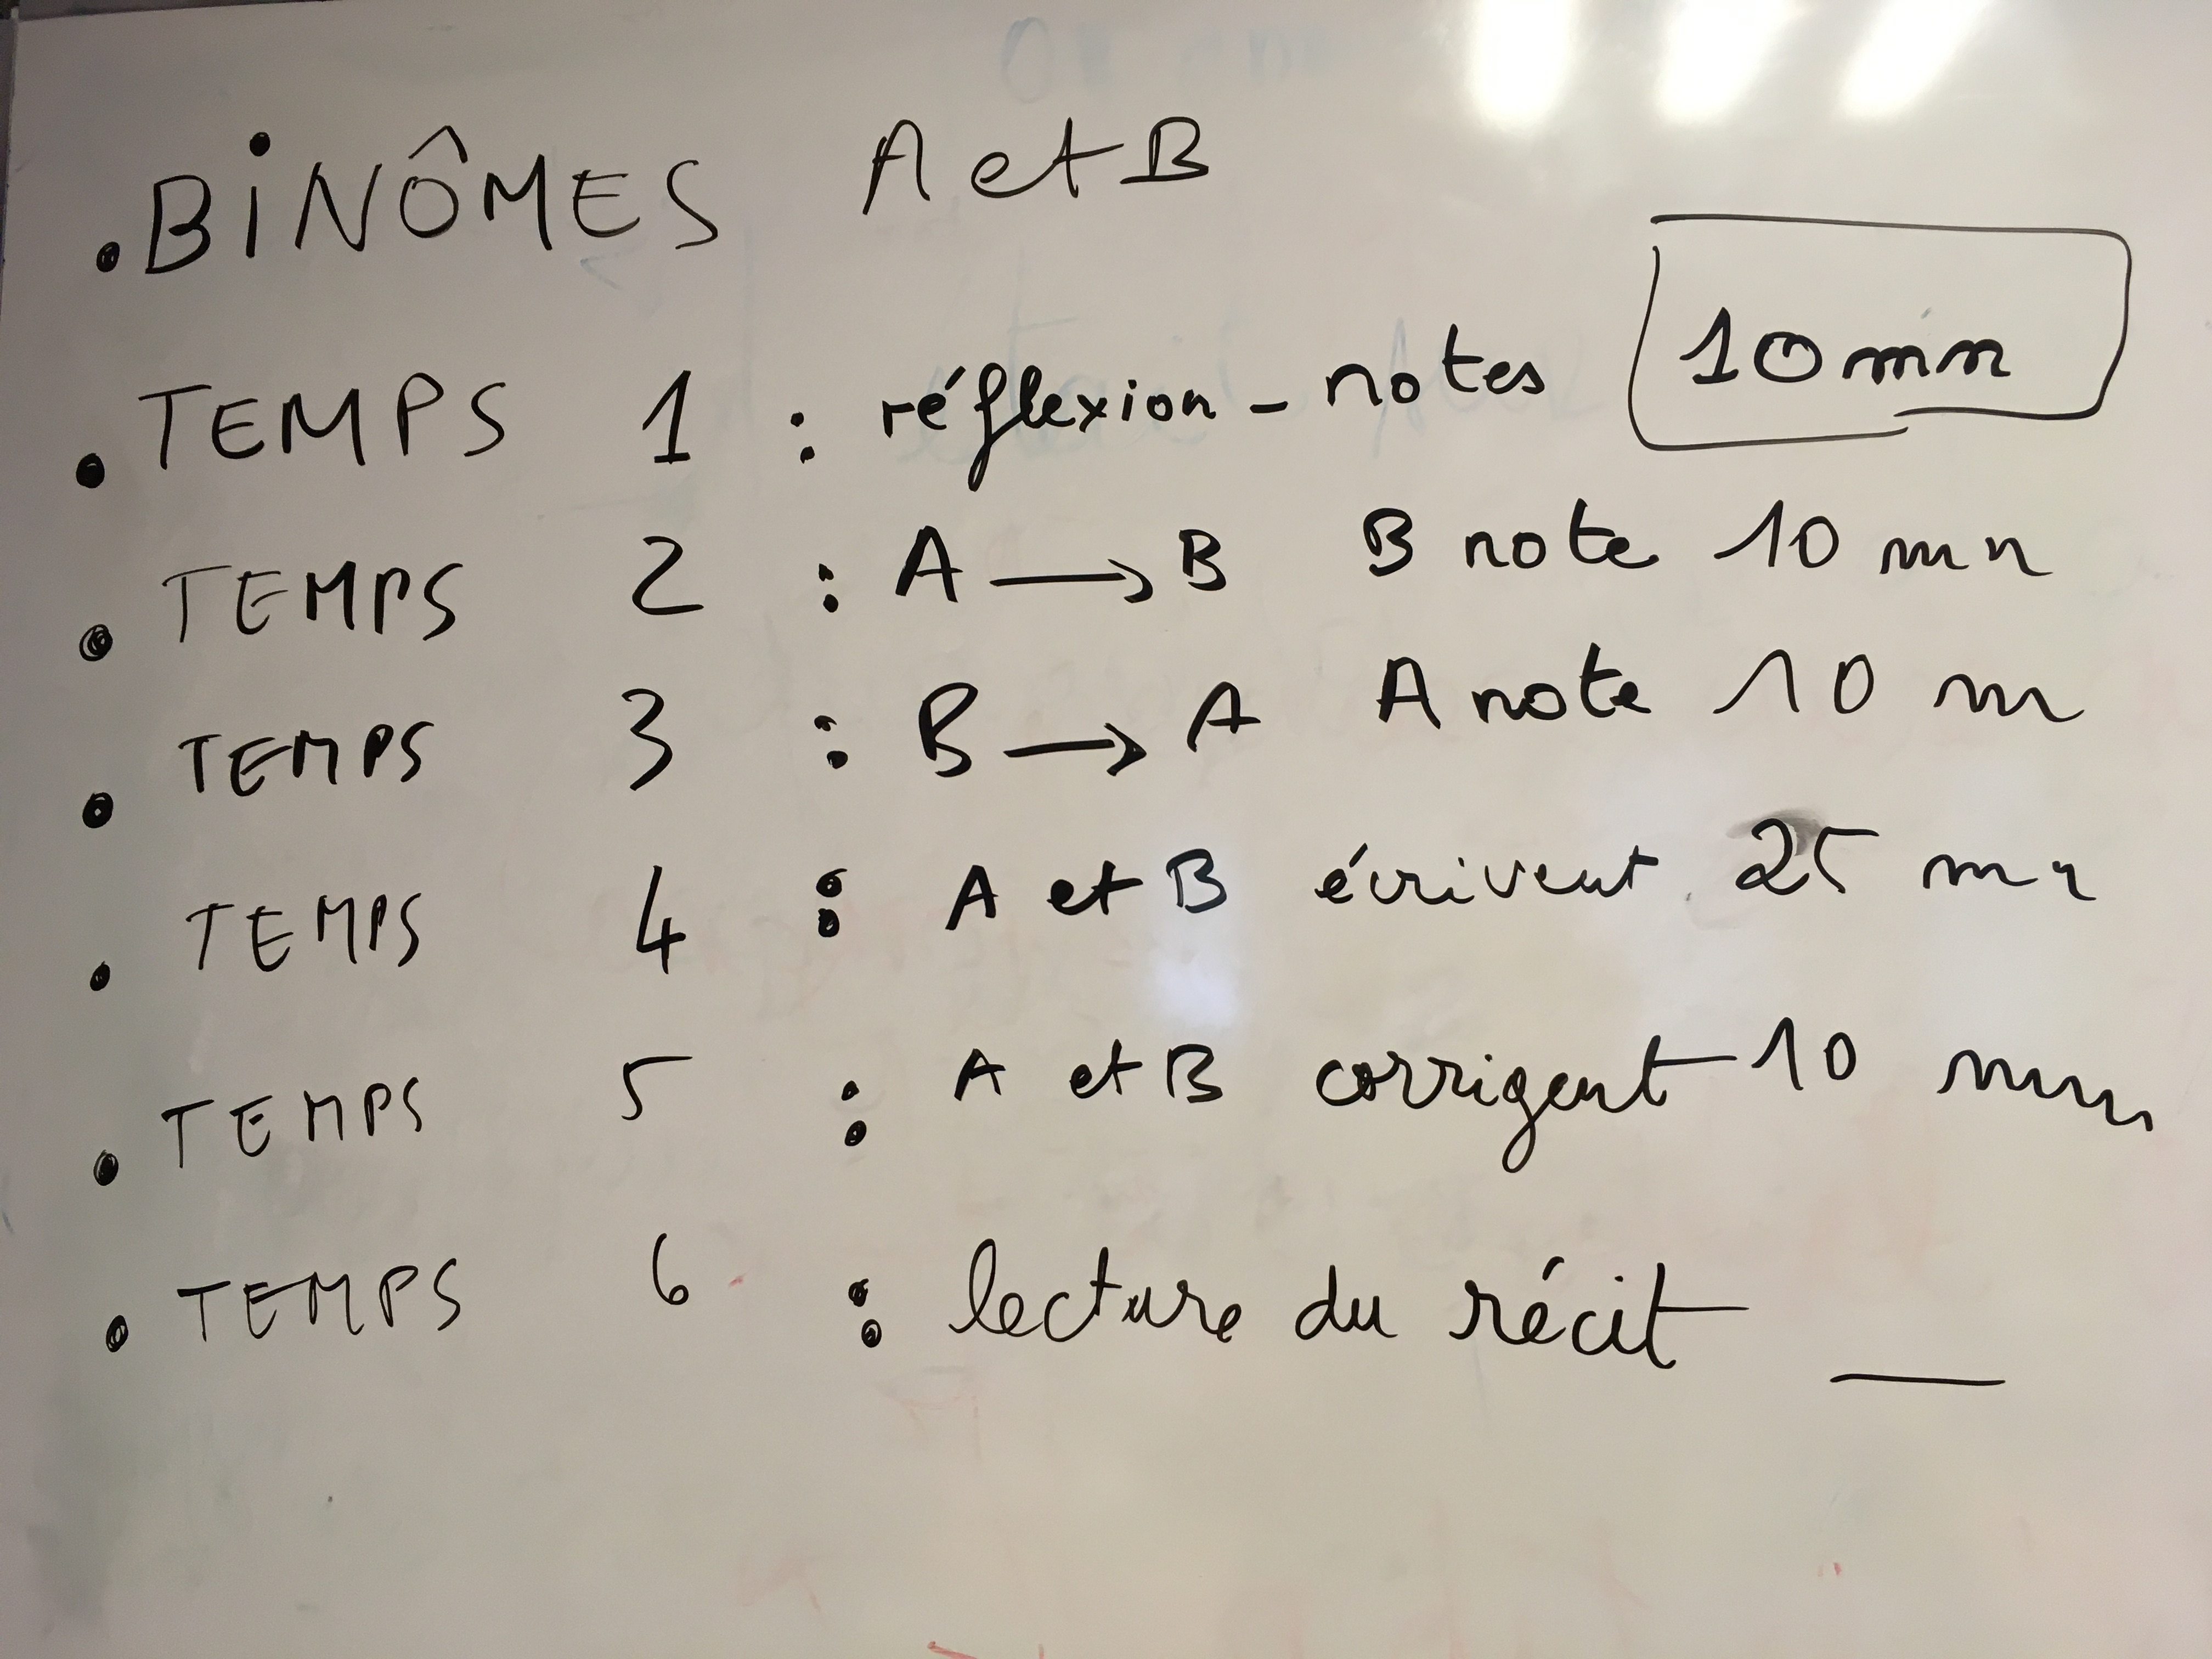 . BiNÔMES A et B
. TEMPS 1 : réflexion - notes 10 mn
. TEMPS 2 : A → B B note 10 mn
. TEMPS 3 : B → A A note 10 m
. TEMPS 4 : A et B écrivent 25 mn
. TEMPS 5 : A et B corrigent 10 mn
. TEMPS 6 : lecture du récit __